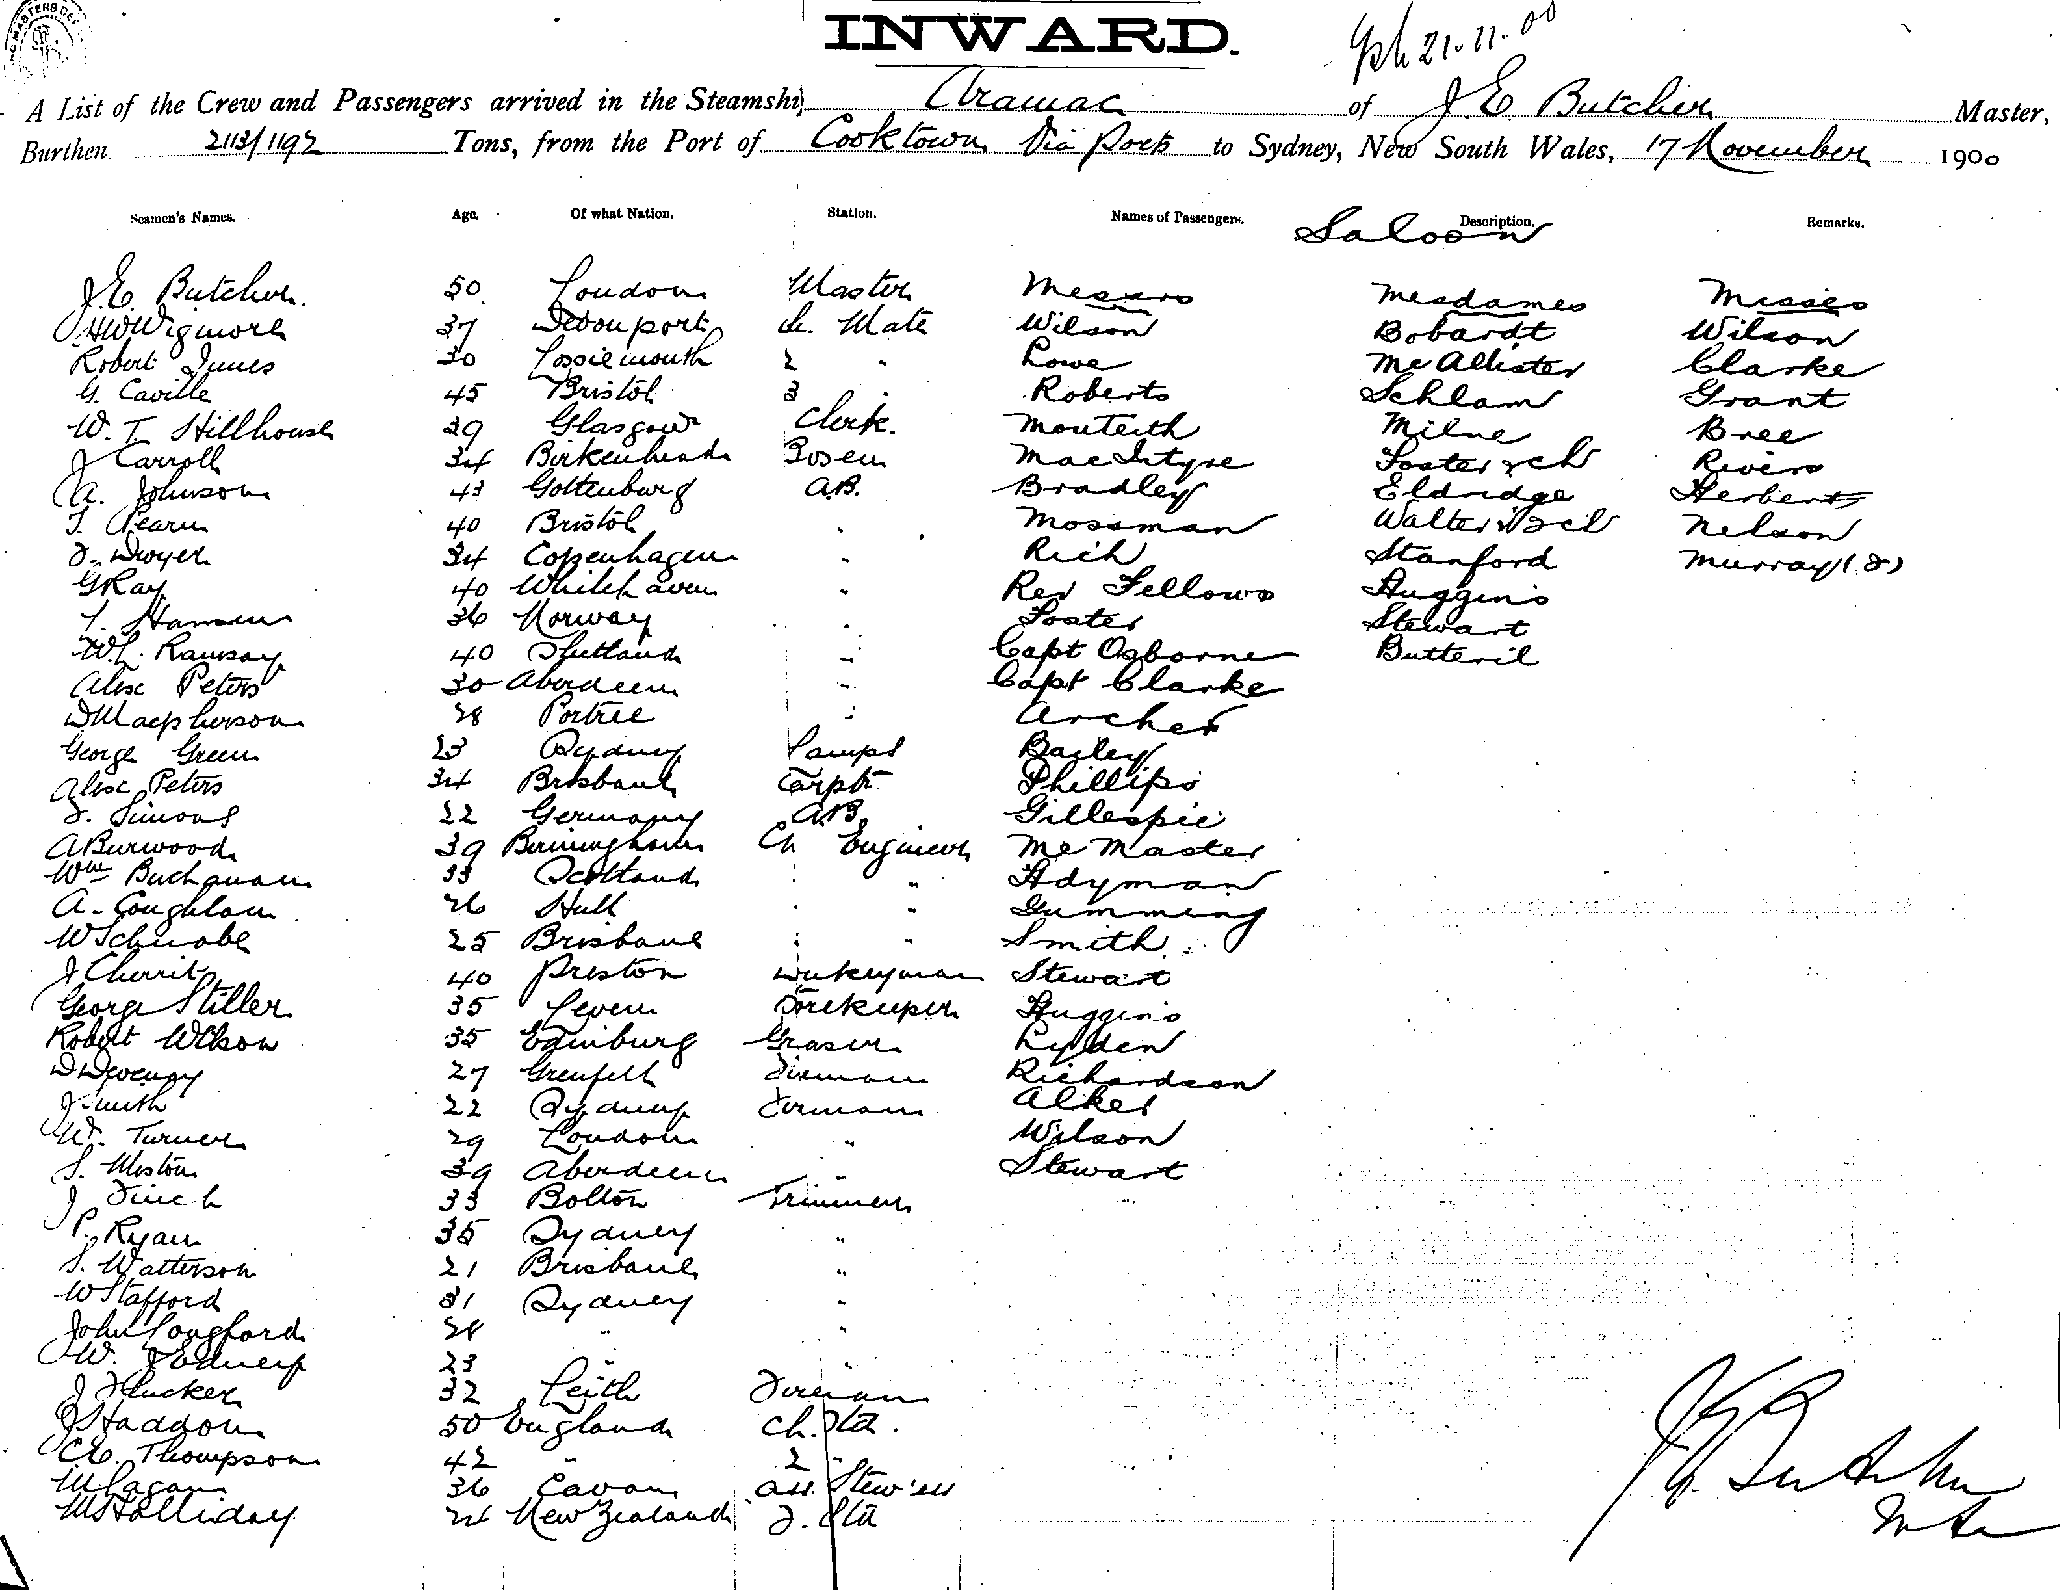 INWARD.
21.11.00
A List of the Crew and Passengers arrived in the Steamship Aramac of J E Butcher Master,
Burthen 2113/1192 Tons, from the Port of Cooktown Via Ports to Sydney, New South Wales, 17 November 1900
Seamen's Names. Age. Of what Nation. Station. Names of Passengers. Description. Remarks.
Saloon
J.E. Butcher. 50 London Master Messrs Mesdames Misses
HW Wigmore 37 Devonport Ch. Mate Wilson Bobardt Wilson
Robert Innes 30 Lossiemouth 2 " Lowe McAllister Clarke
G. Caville 45 Bristol 3 " Roberts Schlam Grant
W. T Hillhouse 29 Glasgow Clerk. Monteith Milne Bree
J Carroll 34 Birkenhead Bosen MacIntyre Foster & ch Rivers
A. Johnson 43 Gottenburg A.B. Bradley Eldridge Herbert
T. Pearn 40 Bristol " Mossman Walter & 2 ch Nelson
J. Dwyer 34 Copenhagen " Rich Stanford Murray (2)
G Kay 40 Whitehaven " Rev Fellows Huggins
T. Hansen 36 Norway " Foster Stewart
W.L. Ramsay 40 Shetland " Capt Osborne Butteril
Alex Peters 30 Aberdeen " Capt Clarke
D Macpherson 28 Portree " Archer
George Green 23 Sydney Lamps Bailey
Alex Peters 34 Brisbane Carptr Phillips
J. Simons 22 Germany A.B. Gillespie
A Burwood 39 Birmingham Ch Engineer McMaster
Wm Buchanan 33 Scotland " Hdyman
A. Coughlan 26 Hull " Gumming
W Schnabel 25 Brisbane " Smith
J Cherrit 40 Preston Donkeyman Stewart
George Stiller 35 Leven Storekeeper Huggins
Robert Wilson 35 Edinburg Greaser Lyden
D Deveney 27 Grenfell Fireman Richardson
J Smith 22 Sydney Fireman Alker
W. Turner 29 London " Wilson
S. Weston 39 Aberdeen " Stewart
J Finch 33 Bolton Trimmer
P. Ryan 35 Sydney "
S. Watterson 21 Brisbane "
W Stafford 31 Sydney "
John Longford 28 " "
W. 23 " "
J Flucker 32 Leith Fireman
J Haddon 50 England Ch. Std.
C.E. Thompson 42 " 2 "
M Fagan 36 Cavan ass. Stew'ess
M Halliday 24 New Zealand F. Std
J E Butcher